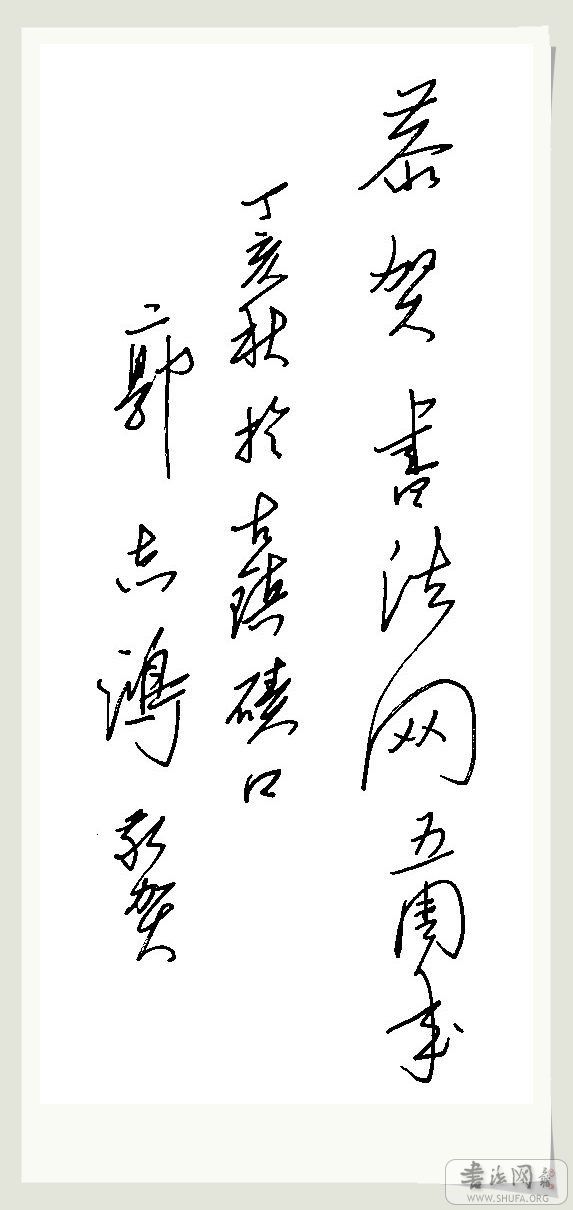 恭贺书法网五周年
丁亥秋於古镇碛口
郭志鸿敬贺
书法网
WWW.SHUFA.ORG